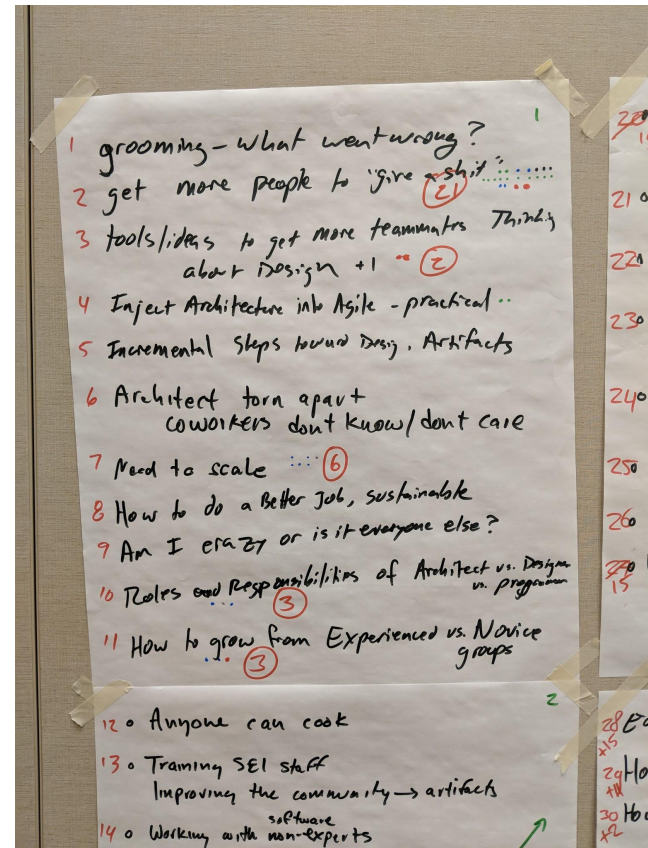 1
1 grooming - what went wrong?
2 get more people to "give a shit"
21
3 tools/ideas to get more teammates Thinking
about Design +1 2
4 Inject Architecture into Agile - practical
5 Incremental Steps toward Desig. Artifacts
6 Architect torn apart
coworkers dont know/dont care
7 Need to scale 6
8 How to do a Better Job, sustainable
9 Am I crazy or is it everyone else?
10 Roles and Responsibilities of Architect vs. Designer
vs. programmer
3
11 How to grow from Experienced vs. Novice
groups
3
2
12 Anyone can cook
13 Training SEI staff
Improving the community → artifacts
software
14 Working with non-experts
21
22
23
24
25
26
15
28
+15
29 Ho
30 Ho
+2